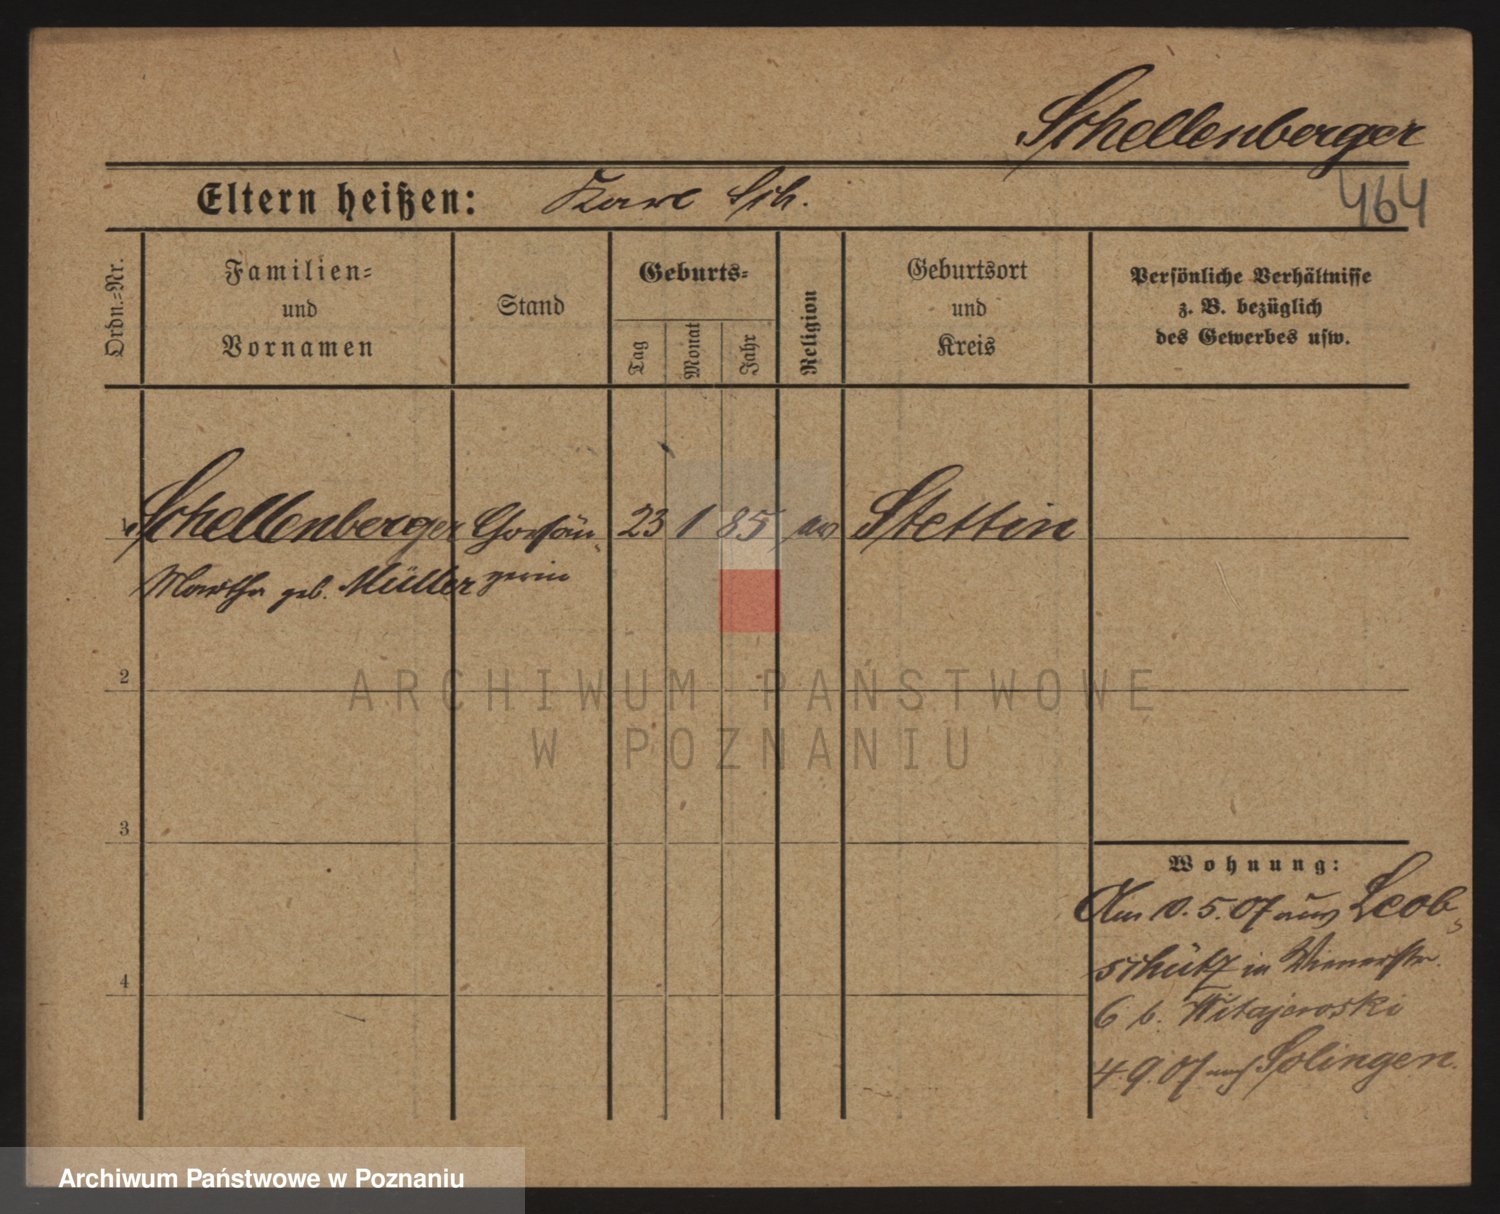 Schellenberger
464
Eltern heißen: Karl Sch.
Ordn.-Nr.
Familien-
und
Vornamen
Stand
Geburts-
Tag
Monat
Jahr
Religion
Geburtsort
und
Kreis
Persönliche Verhältnisse
z. B. bezüglich
des Gewerbes usw.
1 Schellenberger Chorsän- 23 1 85 Stettin
Martha geb. Müller gerin
2
3
4
Wohnung:
Am 10.5.07 aus Leob-
schütz in Wienerstr.
6 b. Witajewski
4.9.07 nach Solingen.
ARCHIWUM PAŃSTWOWE
W POZNANIU
Archiwum Państwowe w Poznaniu